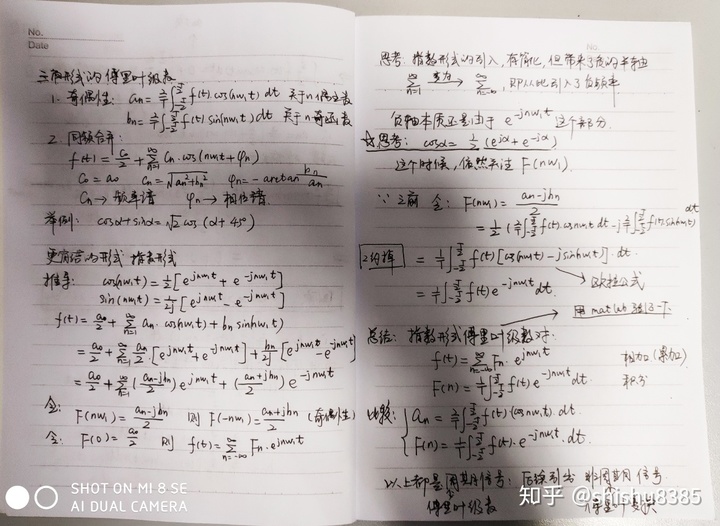 No.
Date
三角形式的傅里叶级数
1. 奇偶性: an = 2/T ∫_{-T/2}^{T/2} f(t) cos(nw₁t) dt 关于n偶函数
bn = 2/T ∫_{-T/2}^{T/2} f(t) sin(nw₁t) dt 关于n奇函数
2. 同频合并:
f(t) = C₀/2 + Σ_{n=1}^{∞} Cn·cos(nw₁t+φn)
C₀ = a₀ Cn = √(an²+bn²) φn = -arctan bn/an
Cn → 频率谱 φn → 相位谱
举例: cosα+sinα = √2 cos(α+45°)
更简洁的形式 指数形式
推导: cos(nw₁t) = 1/2 [e^{jnw₁t} + e^{-jnw₁t}]
sin(nw₁t) = 1/2j [e^{jnw₁t} - e^{-jnw₁t}]
f(t) = a₀/2 + Σ_{n=1}^{∞} an·cos(nw₁t) + bn sin(nw₁t)
= a₀/2 + Σ_{n=1}^{∞} an/2·[e^{jnw₁t} + e^{-jnw₁t}] + bn/2j [e^{jnw₁t} - e^{-jnw₁t}]
= a₀/2 + Σ_{n=1}^{∞} (an-jbn/2) e^{jnw₁t} + (an+jbn/2) e^{-jnw₁t}
令: F(nw₁) = an-jbn/2 则 F(-nw₁) = an+jbn/2 (奇偶性)
令: F(0) = a₀/2 则 f(t) = Σ_{n=-∞}^{∞} Fn·e^{jnw₁t}
No.
思考: 指数形式的引入, 有简化, 但带来了负的半轴
Σ_{n=1}^{∞} 变为→ Σ_{n=-∞}^{∞}, 即从此引入了负频率
负轴本质还是由于 e^{-jnw₁t} 这个部分.
☆思考: cosα = 1/2 (e^{jα} + e^{-jα})
这个时候, 依然关注 F(nw₁)
∵ 之前 令: F(nw₁) = an-jbn/2
= 1/2 (2/T ∫_{-T/2}^{T/2} f(t)·cosnw₁t dt - j 2/T ∫_{-T/2}^{T/2} f(t) sinnw₁t dt)
2约掉 = 1/T ∫_{-T/2}^{T/2} f(t) [cos(nw₁t) - jsin(nw₁t)]·dt
→ 欧拉公式
= 1/T ∫_{-T/2}^{T/2} f(t) e^{-jnw₁t} dt.
→ 用matlab验证一下.
总结: 指数形式傅里叶级数对:
f(t) = Σ_{n=-∞}^{∞} Fn·e^{jnw₁t} 相加(累加)
F(n) = 1/T ∫_{-T/2}^{T/2} f(t) e^{-jnw₁t} dt 积分
比较: { an = 2/T ∫_{-T/2}^{T/2} f(t) cosnw₁t·dt
F(n) = 1/T ∫_{-T/2}^{T/2} f(t)·e^{-jnw₁t}·dt.
以上都是周期信号; 后续引出 非周期信号
傅里叶级数 傅里叶变换
SHOT ON MI 8 SE
AI DUAL CAMERA
知乎 @shishu8385